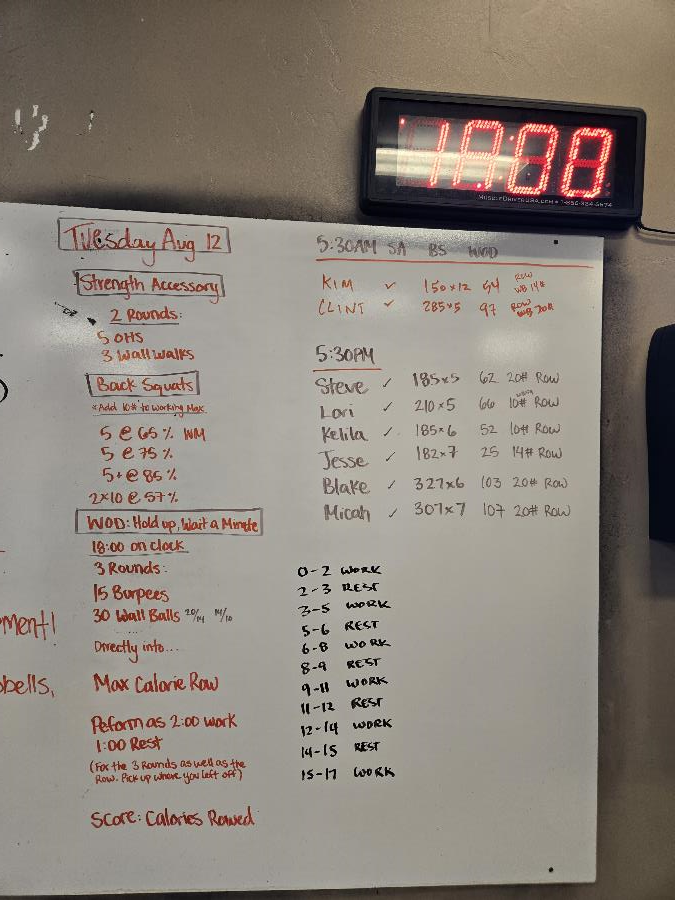 18:00
Tuesday Aug 12
Strength Accessory
2 Rounds:
5 OHS
3 Wall walks
Back Squats
*Add 10# to working Max
5 @ 65% WM
5 @ 75%
5+ @ 85%
2x10 @ 57%
WOD: Hold up, Wait a Minute
18:00 on clock
3 Rounds:
15 Burpees
30 Wall Balls 20/14 14/10
Directly into...
Max Calorie Row
Peform as 2:00 work
1:00 Rest
(For the 3 Rounds as well as the
Row. Pick up where you left off)
Score: Calories Rowed
5:30AM SA BS WOD
KIM ✓ 150x12 54 ROW WB 14#
CLINT ✓ 285x5 97 ROW WB 20#
5:30PM
Steve ✓ 185x5 62 20# Row
Lori ✓ 210x5 66 10# Row
Kelila ✓ 185x6 52 10# Row
Jesse ✓ 182x7 25 14# Row
Blake ✓ 327x6 103 20# Row
Micah ✓ 307x7 107 20# Row
0-2 WORK
2-3 REST
3-5 WORK
5-6 REST
6-8 WORK
8-9 REST
9-11 WORK
11-12 REST
12-14 WORK
14-15 REST
15-17 WORK
ement!
bells,